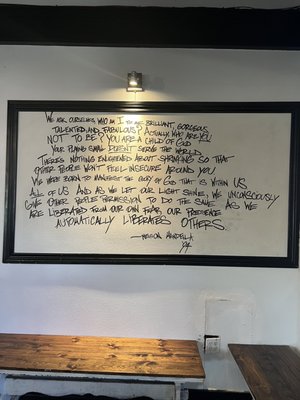 WE ASK OURSELVES, WHO AM I TO BE BRILLIANT, GORGEOUS,
TALENTED, AND FABULOUS? ACTUALLY WHO ARE YOU
NOT TO BE? YOU ARE A CHILD OF GOD
YOUR PLAYING SMALL DOESN'T SERVE THE WORLD.
THERE'S NOTHING ENLIGHTENED ABOUT SHRINKING SO THAT
OTHER PEOPLE WON'T FEEL INSECURE AROUND YOU
WE WERE BORN TO MANIFEST THE GLORY OF GOD THAT IS WITHIN US
ALL OF US AND AS WE LET OUR LIGHT SHINE, WE UNCONSCIOUSLY
GIVE OTHER PEOPLE PERMISSION TO DO THE SAME AS WE
ARE LIBERATED FROM OUR OWN FEAR, OUR PRESENCE
AUTOMATICALLY LIBERATES OTHERS.
—NELSON MANDELA